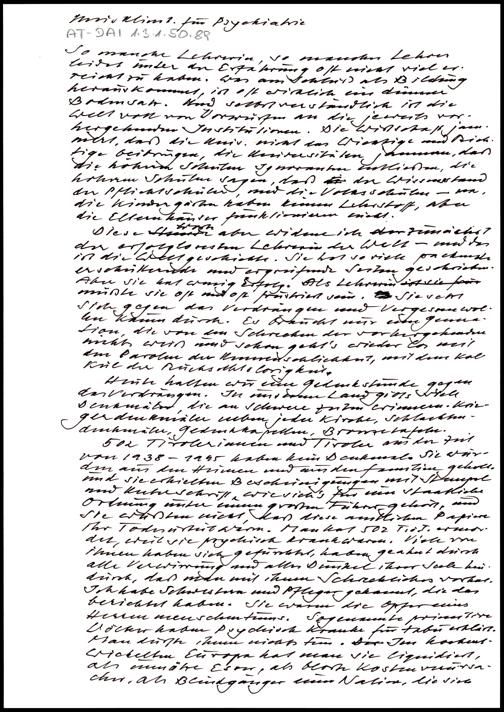 Univ. Klinik für Psychiatrie
AT-DAI 1.3.1.50.88
So manche Lehrerin, so mancher Lehrer
leidet unter der Erfahrung oft nicht viel er-
reicht zu haben. Was am Schluß als Bildung
herauskommt, ist oft wirklich ein dünner
Bodensatz. Und selbstverständlich ist die
Welt voll von Vorwürfen an die jeweils vor-
hergehenden Institutionen. Die Wirtschaft jam-
mert, daß die Univ. nicht das Wichtige und Rich-
tige beibringen, die Universitäten jammern, daß
die höheren Schulen Ignoranten entließen, die
höheren Schulen sagen, daß der Wissensstand
der Pflichtschüler, und die Volksschulen – na,
die Kindergärten haben keinen Lehrstoff, aber
die Elternhäuser funktionieren nicht.
Diese aber widme ich der
der erfolglosesten Lehrerin der Welt – und das
ist die Weltgeschichte. Sie hat so viele packende
erschütternde und ergreifende Seiten geschrieben.
Aber sie hat wenig Erfolg. Als Lehrerin
müßte sie oft und oft frustriert sein. Sie setzt
sich gegen das Verdrängen und Vergessenwol-
len kaum durch. Es braucht nur eine Genera-
tion, die von den Schrecken der vorhergehenden
nichts weiß und schon geht's wieder los mit
den Parolen der Unmenschlichkeit, mit dem Kal-
kül der Rücksichtslosigkeit.
Heute halten wir eine Gedenkstunde gegen
das Verdrängen. In unserem Land gibt's viele
Denkmäler, die an schwere Zeiten erinnern. Krie-
gerdenkmäler neben jeder Kirche, Schlachten-
denkmäler, Gedenkkapellen, Bronzetafeln.
502 Tirolerinnen und Tiroler aus der Zeit
von 1938 – 1945 haben kein Denkmal. Sie wur-
den aus den Heimen und aus den Familien geholt
und sie erhielten Bescheinigungen mit Stempel
und Unterschrift, wie sich's für eine staatliche
Ordnung unter einem großen Führer gehört, und
sie wußten nicht, daß diese amtlichen Papiere
Ihr Todesurteil waren. Man hat 502 Tir. ermor-
det, weil sie psychisch krank waren. Viele von
ihnen haben sich gefürchtet, haben geahnt durch
alle Verwirrung und alles Dunkel ihrer Seele hin-
durch, daß man mit ihnen Schreckliches vorhat.
Ich habe Schwestern und Pfleger gekannt, die das
berichtet haben. Sie waren die Opfer eines
Herrenmenschentums. Sogenannte primitive
Völker haben psychisch Kranke für tabu erklärt.
Man durfte ihnen nichts tun. Im hochent-
wickelten Europa hat man sie liquidiert,
als unnütze Esser, als bloße Kostenverursa-
cher, als Blindgänger einer Nation, die sich